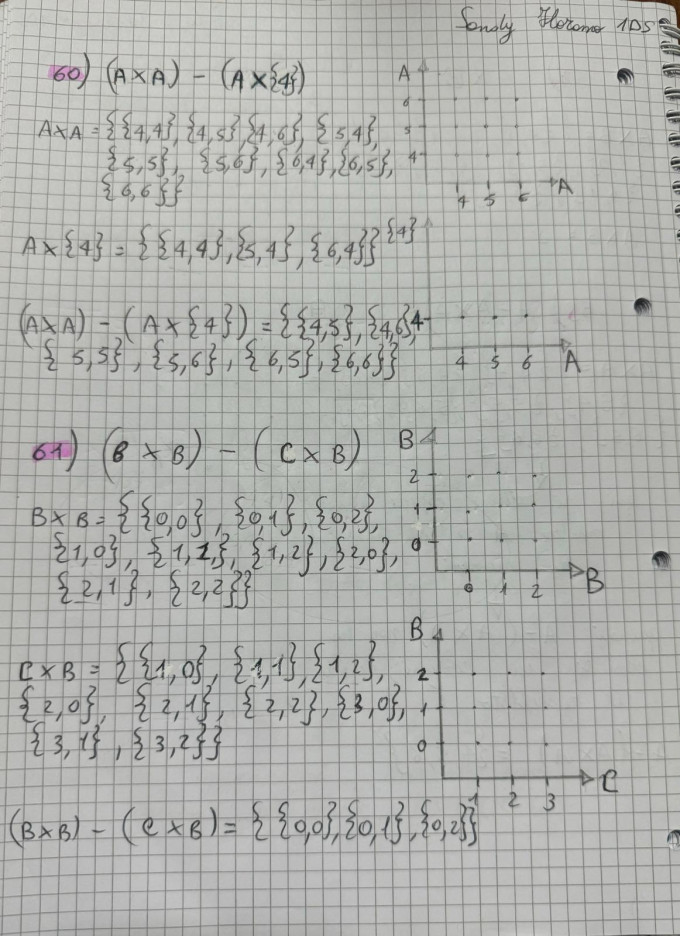 Sandy 1D5
60) (A×A) - (A×{4})
A×A = {{4,4}, {4,5}, {4,6}, {5,4},
{5,5}, {5,6}, {6,4}, {6,5},
{6,6}}
A
6
5
4
4 5 6 A
A×{4} = {{4,4}, {5,4}, {6,4}}
{4}
(A×A) - (A×{4}) = {{4,5}, {4,6},
{5,5}, {5,6}, {6,5}, {6,6}}
4
4 5 6 A
61) (B×B) - (C×B)
B×B = {{0,0}, {0,1}, {0,2},
{1,0}, {1,1,}, {1,2}, {2,0},
{2,1}, {2,2}}
B
2
1
0
0 1 2 B
C×B = {{1,0}, {1,1}, {1,2},
{2,0}, {2,1}, {2,2}, {3,0},
{3,1}, {3,2}}
B
2
1
0
1 2 3 C
(B×B) - (C×B) = {{0,0}, {0,1}, {0,2}}